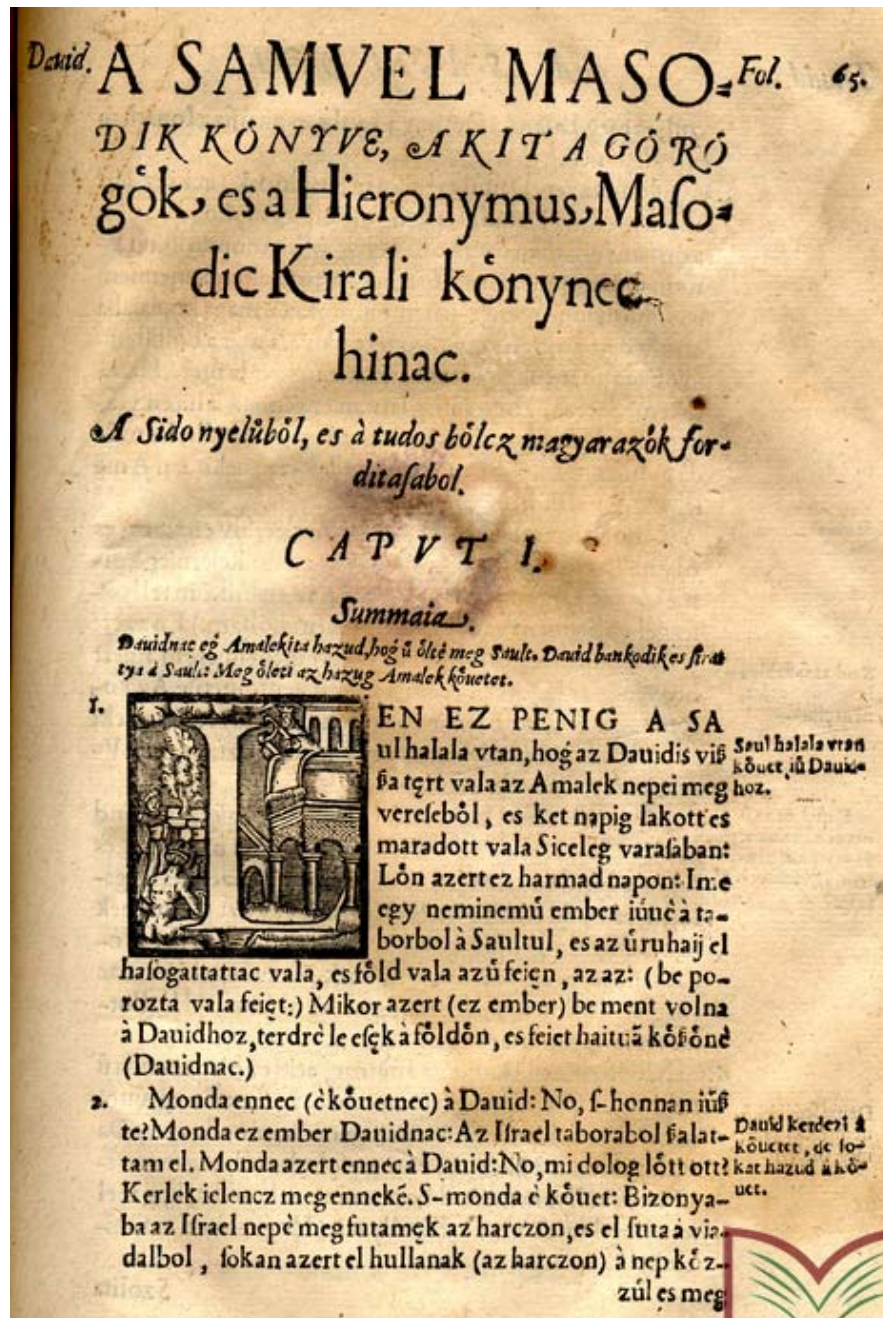 Dauid. A SAMVEL MASO- Fol. 65.
DIK KÖNYVE, A KIT A GÖRÖ
gök, es a Hieronymus, Maſo-
dic Kirali könynec
hinac.
A Sido nyelüböl, es à tudos bölcz magyarazök for-
ditaſabol.
CAPVT I.
Summaia.
Dauidnac eǵ Amalekita hazud, hoǵ ü ölté meg Sault. Dauid bankodik es ſirat
tya à Sault: Meg öleti az hazug Amalek köuetet.
1. LEN EZ PENIG A SA
ul halala vtan, hoǵ az Dauidis viß
ßa tęrt vala az Amalek nepei meg
vereſeböl, es ket napig lakott es
maradott vala Siceleg varaſaban:
Lön azert ez harmad napon: Ime
egy neminemü ember iüuè à ta-
borbol à Saultul, es az ü ruhaij el
Saul halala vtan
köuet iü Daui-
hoz.
haſogattattac vala, es föld vala az ü feięn, az az: (be po-
rozta vala feięt:) Mikor azert (ez ember) be ment volna
à Dauidhoz, terdrè le eſęk à földön, es feiet haituā kößönè
(Dauidnac.)
2. Monda ennec (è köuetnec) à Dauid: No, ſ-honnan iüß
te? Monda ez ember Dauidnac: Az Iſrael taborabol ßalat-
tam el. Monda azert ennec à Dauid: No, mi dolog lött ott?
Kerlek ielencz meg ennekē. S-monda è köuet: Bizonya-
ba az Iſrael nepè meg futamęk az harczon, es el futa à via-
dalbol, ſokan azert el hullanak (az harczon) à nep köz-
zül es meg
Dauid kerdezi à
köuetet, de ſo-
kat hazud à kö-
uet.